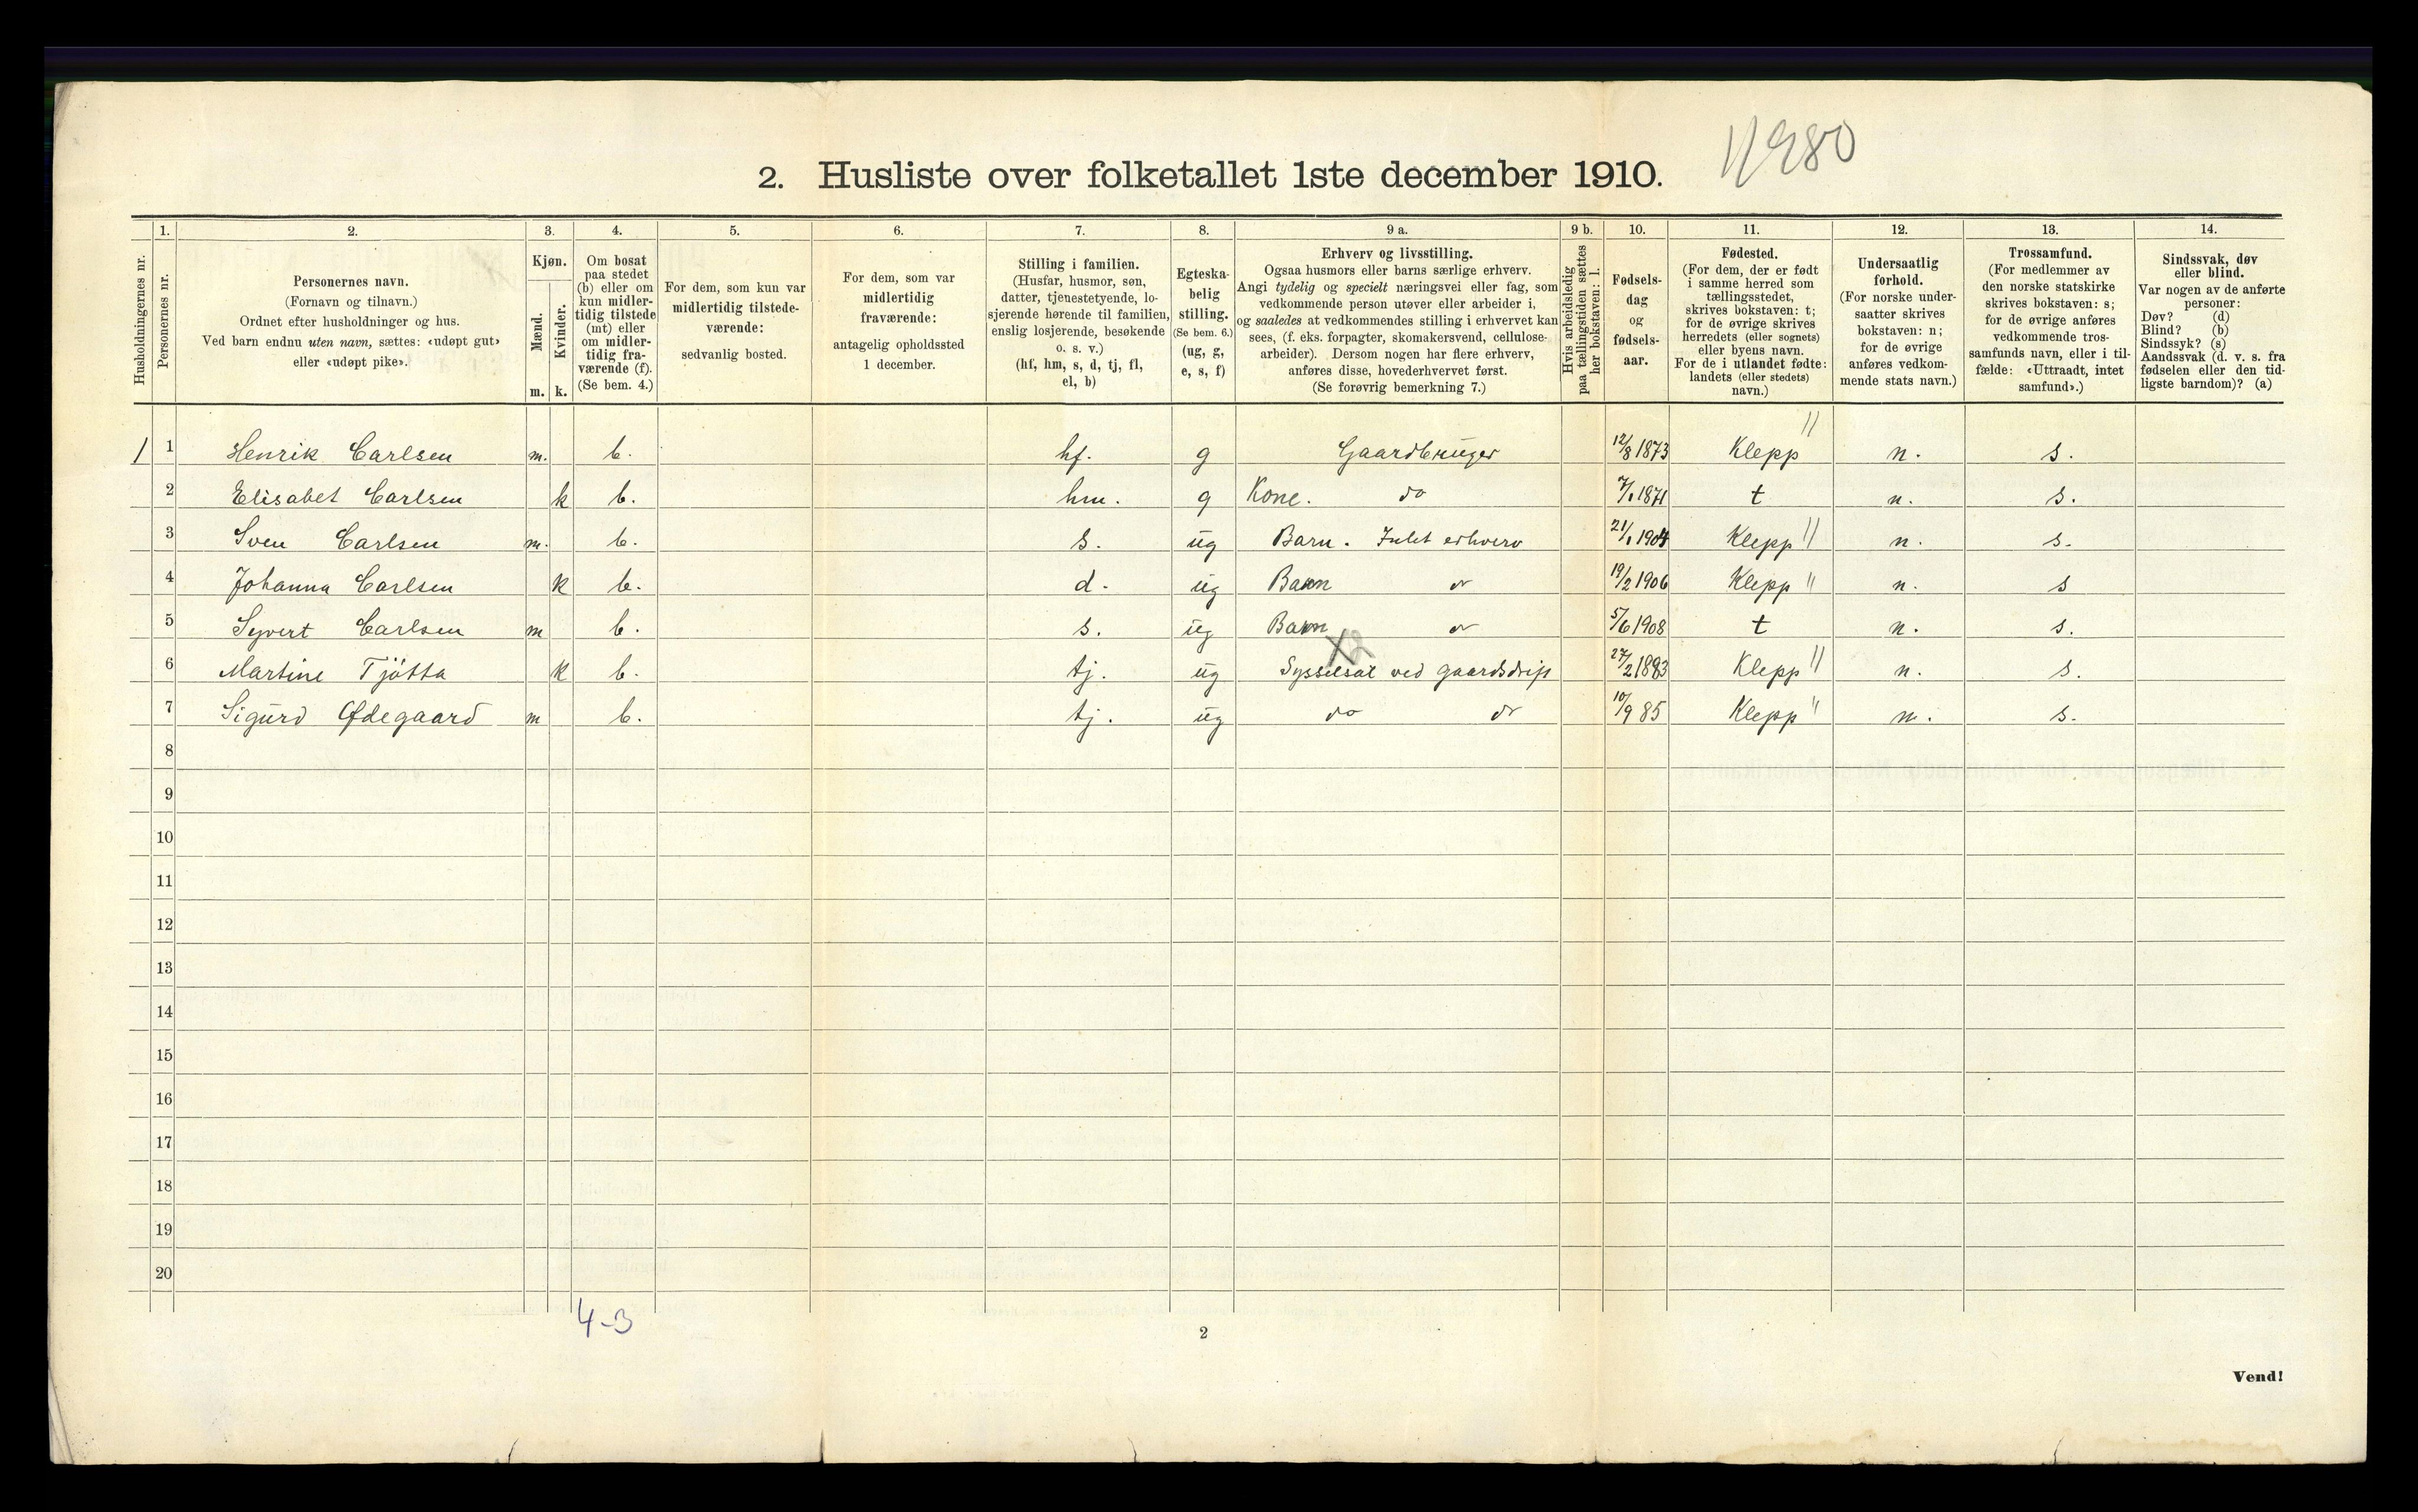 11980
2. Husliste over folketallet 1ste december 1910.
Husholdningernes nr.
1. Personernes nr.
2. Personernes navn.
(Fornavn og tilnavn.)
Ordnet efter husholdninger og hus.
Ved barn endnu uten navn, sættes: «udøpt gut»
eller «udøpt pike».
3. Kjøn.
Mænd. m.
Kvinder. k.
4. Om bosat
paa stedet
(b) eller om
kun midler-
tidig tilstede
(mt) eller
om midler-
tidig fra-
værende (f).
(Se bem. 4.)
5. For dem, som kun var
midlertidig tilstede-
værende:
sedvanlig bosted.
6. For dem, som var
midlertidig
fraværende:
antagelig opholdssted
1 december.
7. Stilling i familien.
(Husfar, husmor, søn,
datter, tjenestetyende, lo-
sjerende hørende til familien,
enslig losjerende, besøkende
o. s. v.)
(hf, hm, s, d, tj, fl,
el, b)
8. Egteska-
belig
stilling.
(Se bem. 6.)
(ug, g,
e, s, f)
9 a. Erhverv og livsstilling.
Ogsaa husmors eller barns særlige erhverv.
Angi tydelig og specielt næringsvei eller fag, som
vedkommende person utøver eller arbeider i,
og saaledes at vedkommendes stilling i erhvervet kan
sees, (f. eks. forpagter, skomakersvend, cellulose-
arbeider). Dersom nogen har flere erhverv,
anføres disse, hovederhvervet først.
(Se forøvrig bemerkning 7.)
9 b. Hvis arbeidsledig
paa tællingstiden sættes
her bokstaven: l.
10. Fødsels-
dag
og
fødsels-
aar.
11. Fødested.
(For dem, der er født
i samme herred som
tællingsstedet,
skrives bokstaven: t;
for de øvrige skrives
herredets (eller sognets)
eller byens navn.
For de i utlandet fødte:
landets (eller stedets)
navn.)
12. Undersaatlig
forhold.
(For norske under-
saatter skrives
bokstaven: n;
for de øvrige
anføres vedkom-
mende stats navn.)
13. Trossamfund.
(For medlemmer av
den norske statskirke
skrives bokstaven: s;
for de øvrige anføres
vedkommende tros-
samfunds navn, eller i til-
fælde: «Uttraadt, intet
samfund».)
14. Sindssvak, døv
eller blind.
Var nogen av de anførte
personer:
Døv? (d)
Blind? (b)
Sindssyk? (s)
Aandssvak (d. v. s. fra
fødselen eller den tid-
ligste barndom)? (a)
1 1 Henrik Carlsen m. b. hf. g Gaardbruger 12/8 1873 Klepp " n. s.
2 Elisabet Carlsen k b. hm. g Kone. do 7/1 1871 t n. s.
3 Sven Carlsen m. b. s. ug Barn. Intet erhverv 21/1 1904 Klepp " n. s.
4 Johanna Carlsen k b. d. ug Barn do 19/2 1906 Klepp " n. s
5 Syvert Carlsen m b. s. ug Barn do 5/6 1908 t n. s.
6 Martine Tjøtta k b. tj. ug Sysselsat ved gaardsdrift 27/2 1883 Klepp " n. s.
7 Sigurd Ødegaard m b. tj. ug do do 10/9 85 Klepp " n. s.
8
9
10
11
12
13
14
15
16
17
18
19
20
4-3
2
Vend!